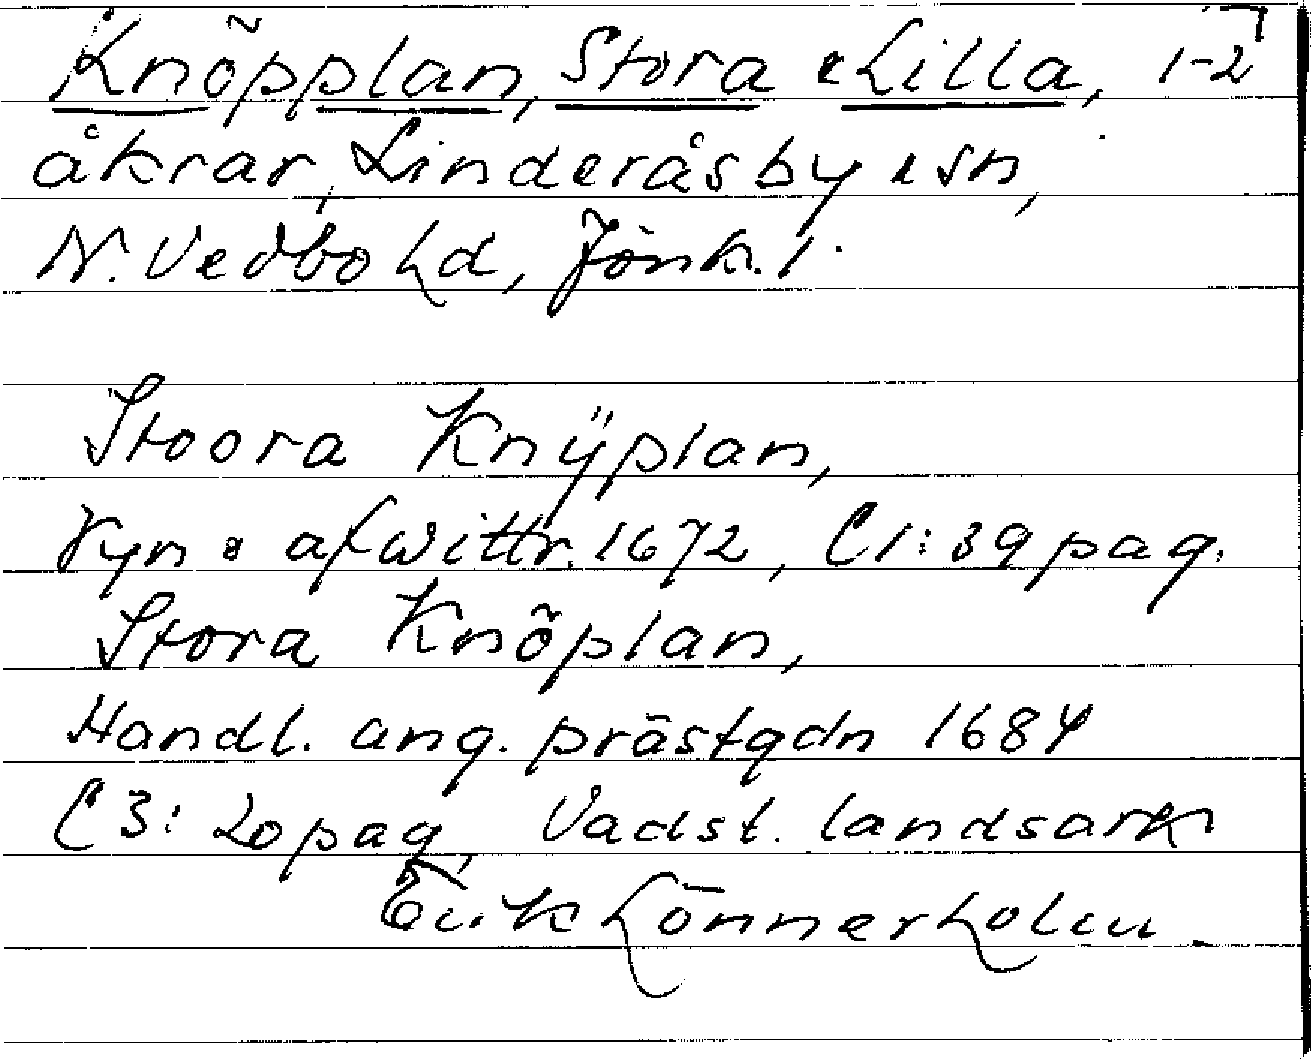 Knöpplan, Stora & Lilla, 1-2
åkrar, Linderås by & sn,
N. Vedbo hd, Jönk. l.
Stoora Knÿplan,
Syn & afwittr. 1672, C1:39 pag.
Stora Knöplan,
Handl. ang. prästgdn 1684
C3: 20 pag, Vadst. landsark
Erik Lönnerholm